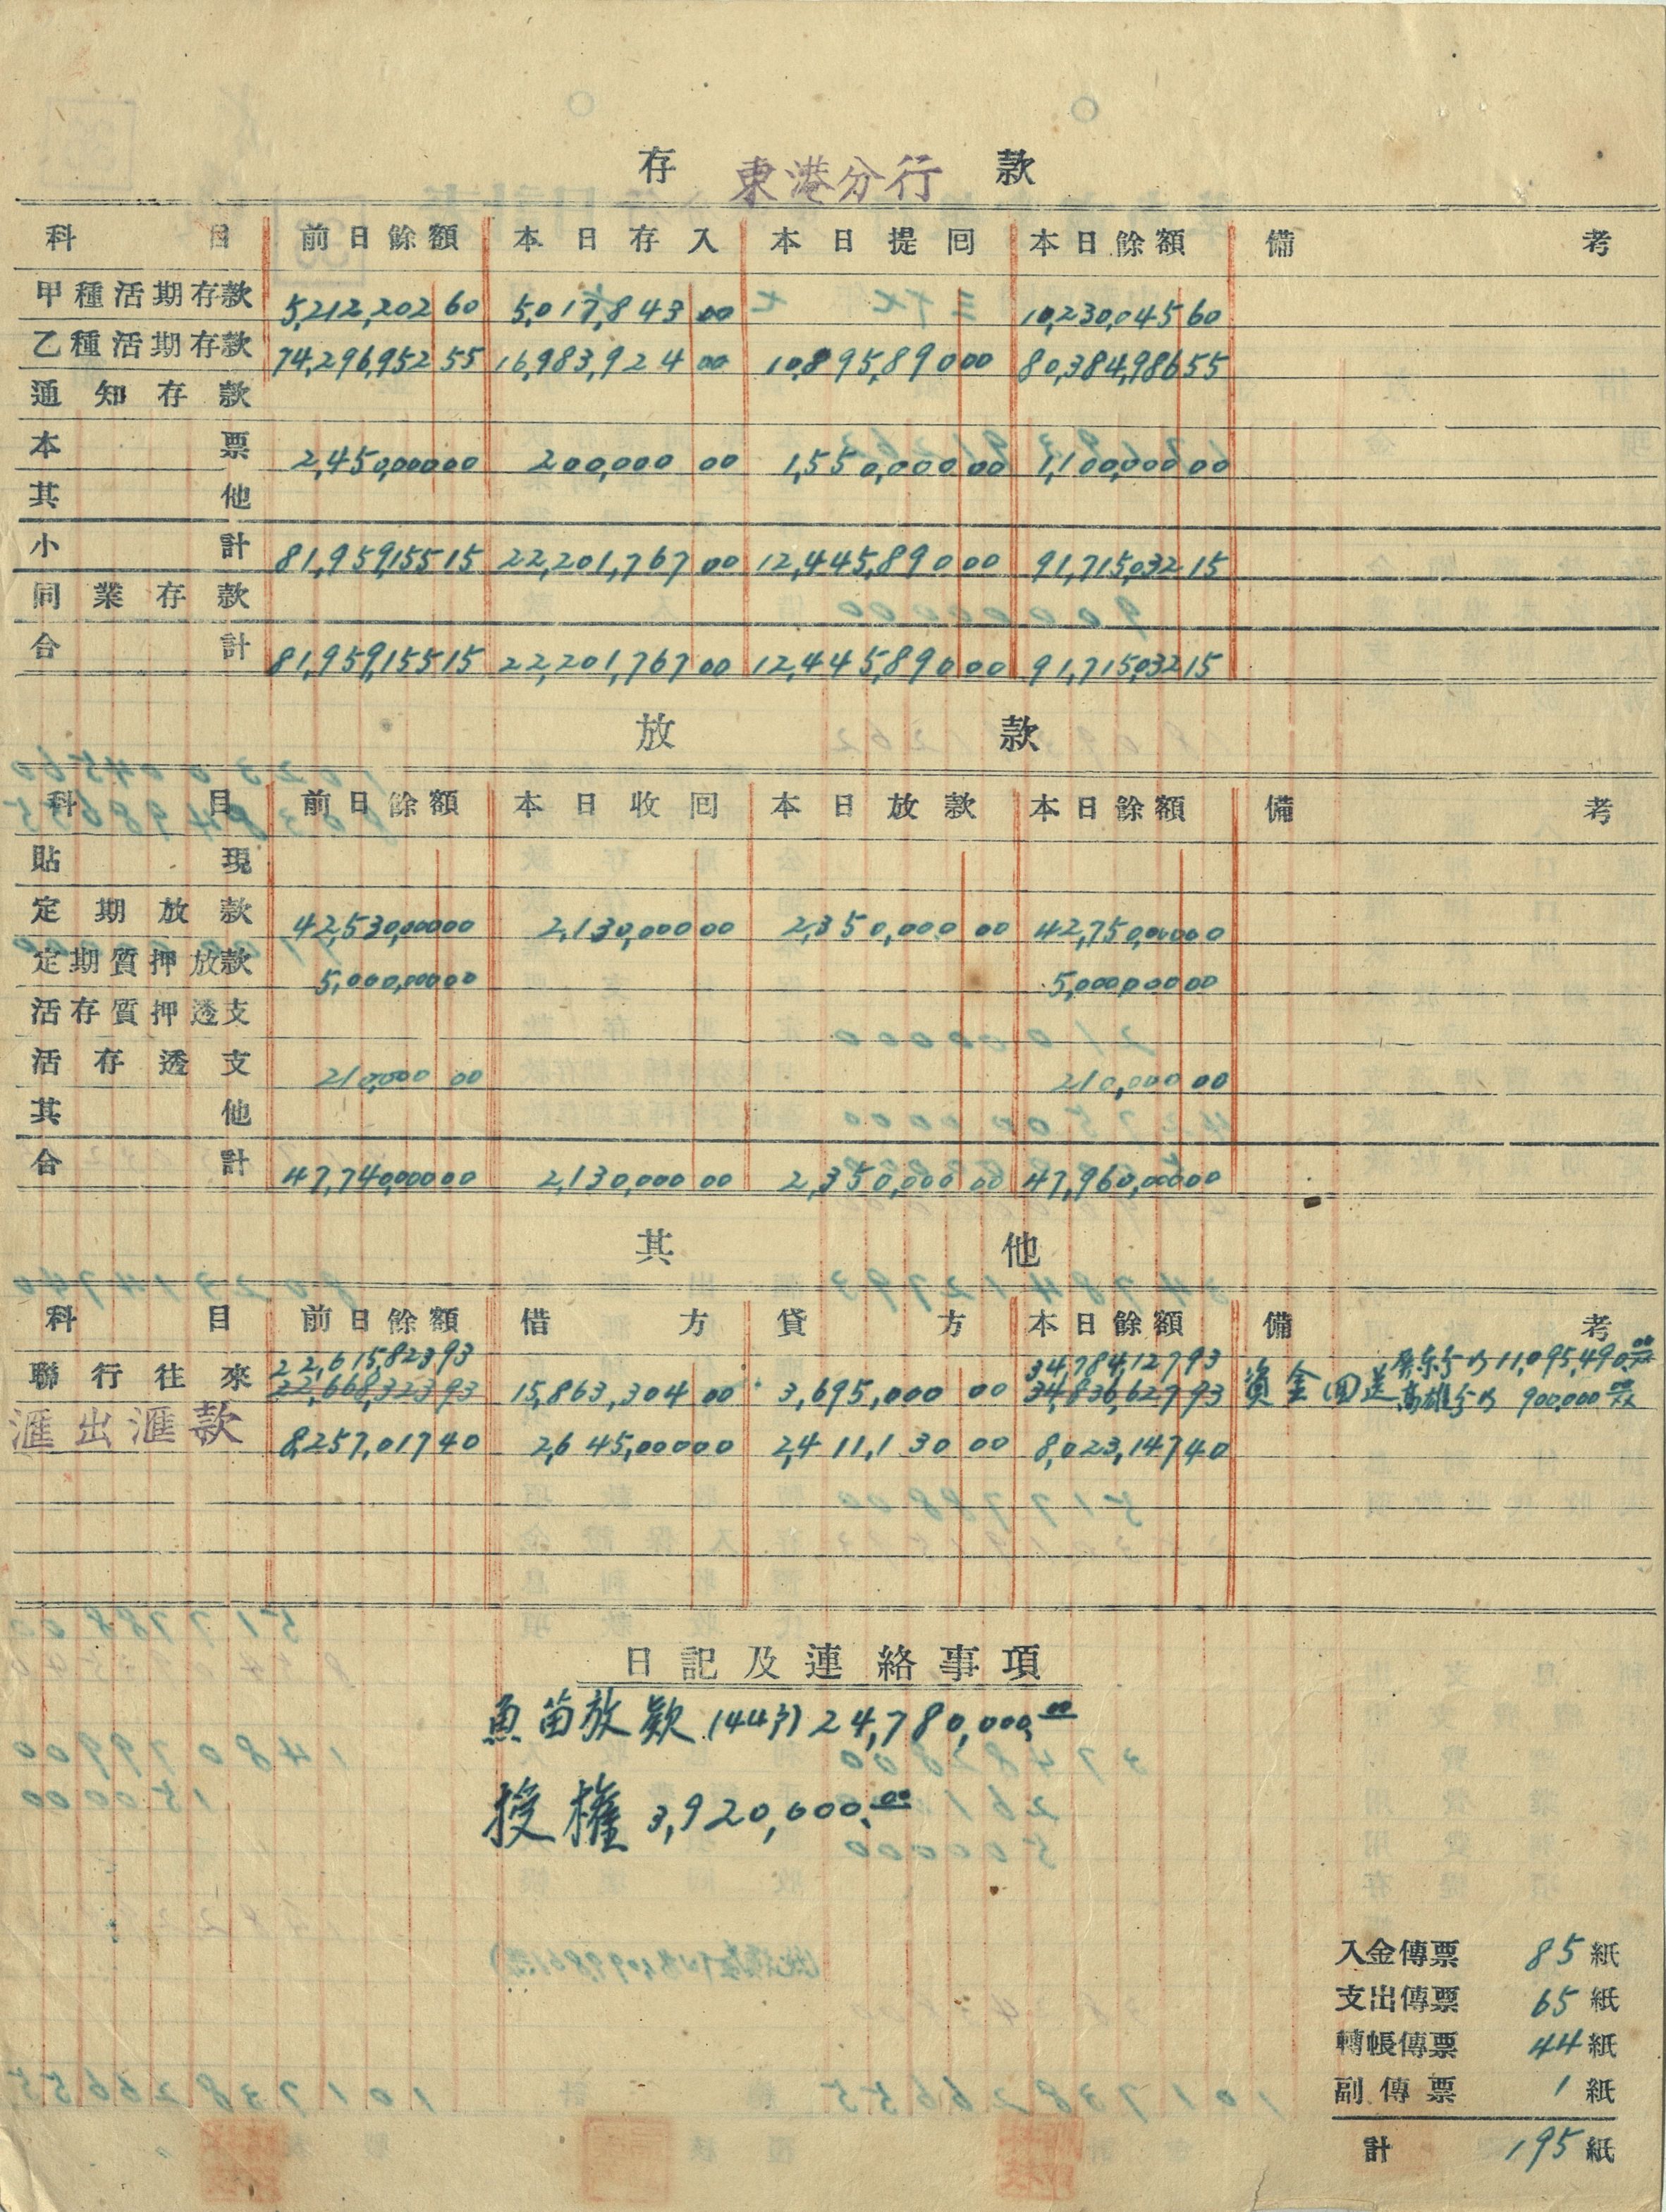 存 東港分行 款
科目 前日餘額 本日存入 本日提囘 本日餘額 備考
甲種活期存款 5,212,202 60 5,017,843 00 10,230,045 60
乙種活期存款 74,296,952 55 16,983,924 00 10,895,890 00 80,384,986 55
通知存款
本票 2,450,000 00 200,000 00 1,550,000 00 1,100,000 00
其他
小計 81,959,155 15 22,201,767 00 12,445,890 00 91,715,032 15
同業存款
合計 81,959,155 15 22,201,767 00 12,445,890 00 91,715,032 15
放款
科目 前日餘額 本日收囘 本日放款 本日餘額 備考
貼現
定期放款 42,530,000 00 2,130,000 00 2,350,000 00 42,750,000 00
定期質押放款 5,000,000 00 5,000,000 00
活存質押透支
活存透支 210,000 00 210,000 00
其他
合計 47,740,000 00 2,130,000 00 2,350,000 00 47,960,000 00
其他
科目 前日餘額 借方 貸方 本日餘額 備考
22,615,823 93 34,784,127 93 屏東分 11,095,490.00
聯行往來 22,668,323 93 15,863,304 00 3,695,000 00 34,836,627 93 資金回送 高雄分 900,000
滙出滙款 8,257,017 40 2,645,000 00 2,411,130 00 8,023,147 40
日記及連絡事項
魚苗放款 (44) 24,780,000.00
授權 3,920,000.00
入金傳票 85 紙
支出傳票 65 紙
轉帳傳票 44 紙
副傳票 1 紙
計 195 紙